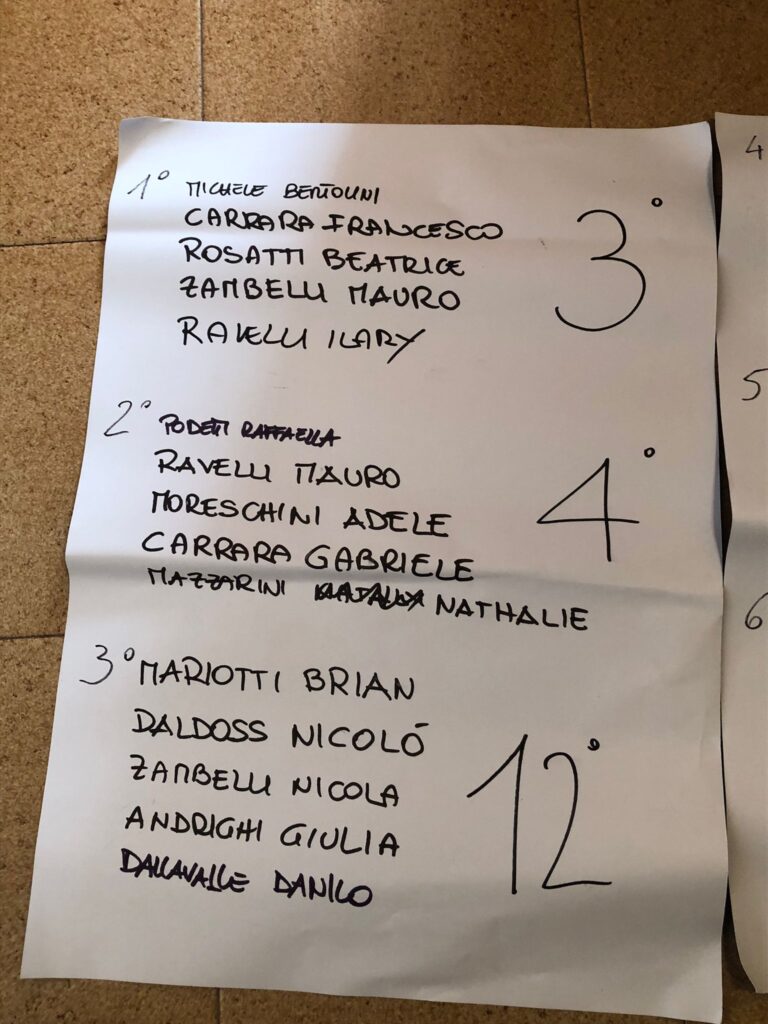 1° MICHELE BERTOLINI
CARRARA FRANCESCO
ROSATTI BEATRICE
ZAMBELLI MAURO
RAVELLI ILARY
3°
2° PODETTI RAFFAELLA
RAVELLI MAURO
MORESCHINI ADELE
CARRARA GABRIELE
MAZZARINI NATHALIE
4°
3° MARIOTTI BRIAN
DALDOSS NICOLÓ
ZAMBELLI NICOLA
ANDRIGHI GIULIA
DALLAVALLE DANILO
12°
4
5
6